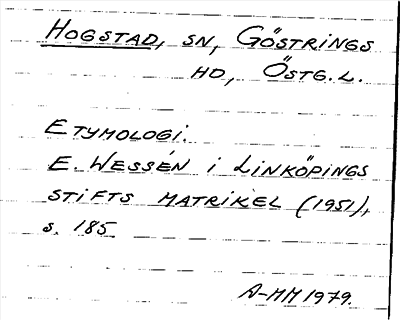 HOGSTAD, SN, GÖSTRINGS
HD, ÖSTG. L.
ETYMOLOGI.
E. WESSÉN i LINKÖPINGS
STIFTS MATRIKEL (1951),
s. 185.
A-MM 1979.